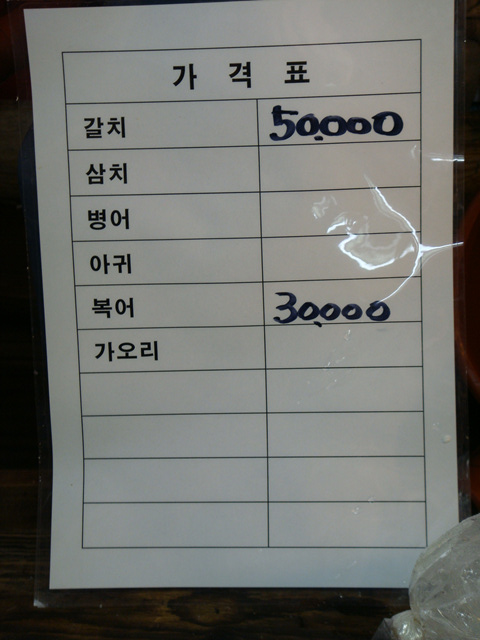 가 격 표
갈치 50,000
삼치
병어
아귀
복어 30,000
가오리